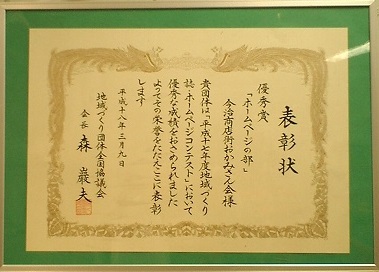 表彰状
優秀賞
「ホームページの部」
今治商店街おかみさん会様
貴団体は「平成十七年度地域づくり
誌・ホームページコンテスト」において
優秀な成績をおさめられました
よってその栄誉をたたえここに表彰
します
平成十八年三月九日
地域づくり団体全国協議会
会長 森 巖夫